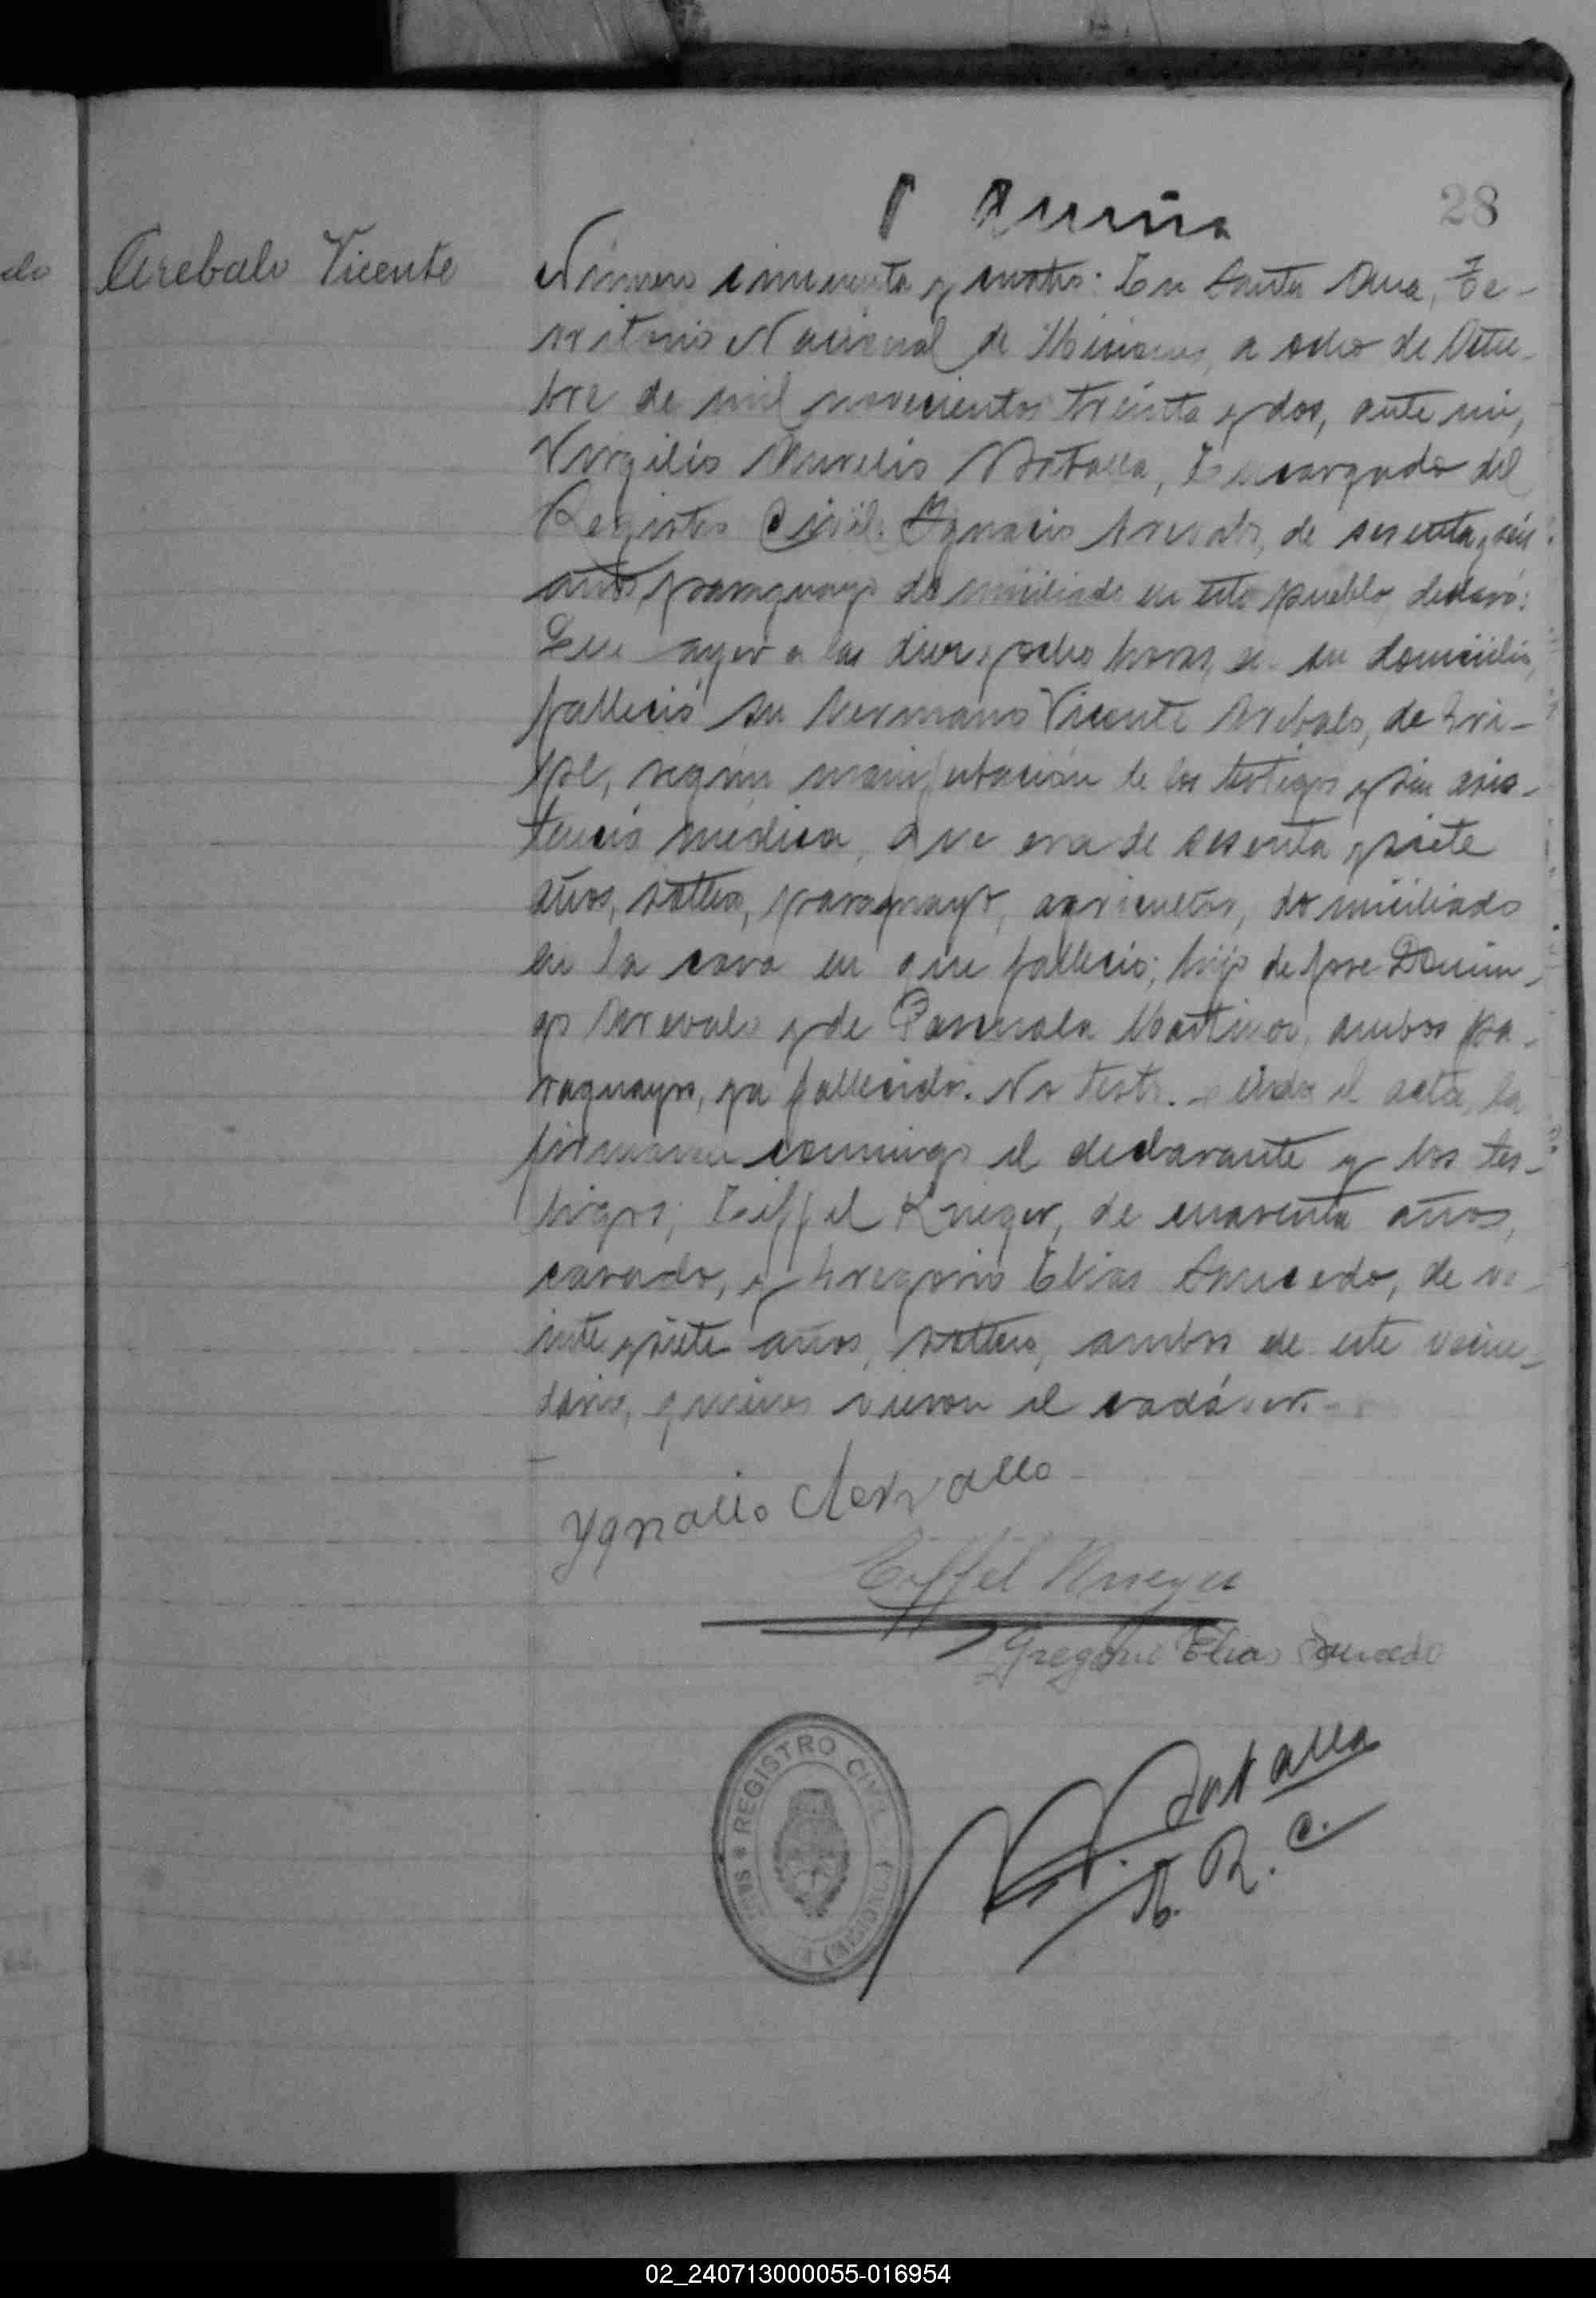 28
Arebalo Vicente
Número cincuenta y cuatro: En Santa Ana, Te-
rritorio Nacional de Misiones, a ocho de Octu-
bre de mil novecientos treinta y dos, ante mi,
Virgilio Aurelio Batalla, Encargado del
Registro Civil. Ignacio Arevalo, de sesenta y seis
años, paraguayo domiciliado en este pueblo, declaró:
Que ayer a las diez y ocho horas, en su domicilio,
falleció su hermano Vicente Arebalo, de Gri-
pe, según manifestación de los testigos y sin asis-
tencia médica, que era de sesenta y siete
años, soltero, paraguayo, agricultor, domiciliado
en la casa en que falleció; hijo de José Domin-
go Arevalo y de Pascuala Martinez, ambos pa-
raguayos, ya fallecidos. No testó. Leída el acta, la
firmaron conmigo el declarante y los tes-
tigos; Eiffel Krieger, de cuarenta años,
casado, y Gregorio Elias Saucedo, de ve-
inte y siete años, soltero, ambos de este vecin-
dario, quienes vieron el cadáver.
Ygnallio
Eiffel Krieger
Gregorio Elias Saucedo
REGISTRO CIVIL
(NACIONAL)
V. A. Batalla
E. R. C.
02_240713000055-016954